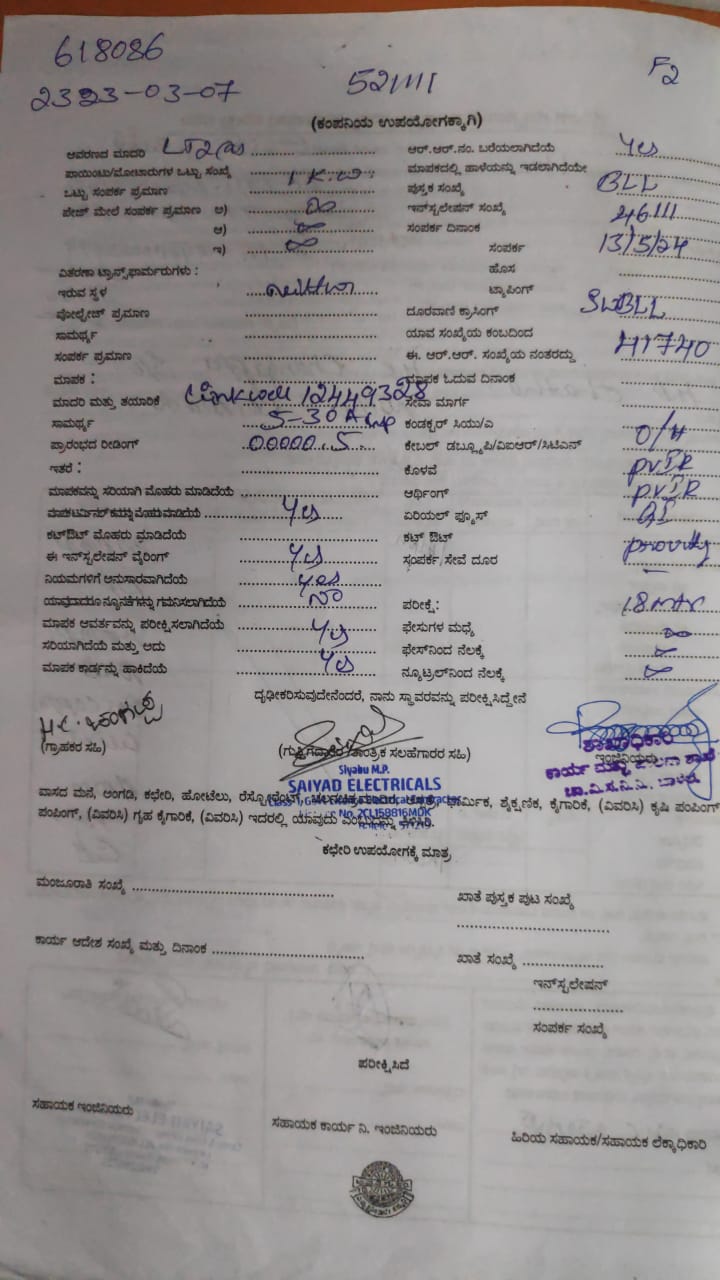 618086
521111
F2
2323-03-07
(ಕಂಪನಿಯ ಉಪಯೋಗಕ್ಕಾಗಿ)
ಆವರಣದ ಮಾದರಿ LT2(a) ಆರ್.ಆರ್.ನಂ. ಬರೆಯಲಾಗಿದೆಯೆ Yes
ಪಾಯಿಂಟು/ಮೋಟಾರುಗಳ ಒಟ್ಟು ಸಂಖ್ಯೆ ಮಾಪಕದಲ್ಲಿ ಹಾಳೆಯನ್ನು ಇಡಲಾಗಿದೆಯೇ
ಒಟ್ಟು ಸಂಪರ್ಕ ಪ್ರಮಾಣ 1 K.W. ಪುಸ್ತಕ ಸಂಖ್ಯೆ BLL
ಪೇಜ್ ಮೇಲೆ ಸಂಪರ್ಕ ಪ್ರಮಾಣ ಅ) ಇನ್‌ಸ್ಟಲೇಷನ್ ಸಂಖ್ಯೆ 46111
ಆ) ಸಂಪರ್ಕ ದಿನಾಂಕ 13/5/24
ಇ) ಸಂಪರ್ಕ
ವಿತರಣಾ ಟ್ರಾನ್ಸ್‌ಫಾರ್ಮರುಗಳು : ಹೊಸ
ಇರುವ ಸ್ಥಳ ಟ್ಯಾಪಿಂಗ್
ವೋಲ್ಟೇಜ್ ಪ್ರಮಾಣ ದೂರವಾಣಿ ಕ್ರಾಸಿಂಗ್ SWBLL
ಸಾಮರ್ಥ್ಯ ಯಾವ ಸಂಖ್ಯೆಯ ಕಂಬದಿಂದ
ಸಂಪರ್ಕ ಪ್ರಮಾಣ ಈ. ಆರ್.ಆರ್. ಸಂಖ್ಯೆಯ ನಂತರದ್ದು 41740
ಮಾಪಕ : ಮಾಪಕ ಓದುವ ದಿನಾಂಕ
ಮಾದರಿ ಮತ್ತು ತಯಾರಿಕೆ 12449328 ಸೇವಾ ಮಾರ್ಗ
ಸಾಮರ್ಥ್ಯ 5-30 Amp ಕಂಡಕ್ಟರ್ ಸಿಯು/ಎ
ಪ್ರಾರಂಭದ ರೀಡಿಂಗ್ 00000.5 ಕೇಬಲ್ ಡಬ್ಲ್ಯೂಪಿ/ವಿಐಆರ್/ಸಿಟಿಎಸ್ O/H
ಇತರೆ : ಕೊಳವೆ PVIR
ಮಾಪಕವನ್ನು ಸರಿಯಾಗಿ ಮೊಹರು ಮಾಡಿದೆಯೆ ಆರ್ಥಿಂಗ್ PVIR
ಮಾಪಕ ಟರ್ಮಿನಲ್‌ಕವರನ್ನು ಮೊಹರು ಮಾಡಿದೆಯೆ Yes ಏರಿಯಲ್ ಫ್ಯೂಸ್ GI
ಕಟ್‌ಔಟ್ ಮೊಹರು ಮಾಡಿದೆಯೆ ಕಟ್ ಔಟ್
ಈ ಇನ್‌ಸ್ಟಲೇಷನ ವೈರಿಂಗ್ Yes ಸಂಪರ್ಕ ಸೇವೆ ದೂರ
ನಿಯಮಗಳಿಗೆ ಅನುಸಾರವಾಗಿದೆಯೆ Yes
ಯಾವುದಾದರೂ ನ್ಯೂನತೆಗಳನ್ನು ಗಮನಿಸಲಾಗಿದೆಯೆ No ಪರೀಕ್ಷೆ: 18 mtr
ಮಾಪಕ ಆವರ್ತವನ್ನು ಪರೀಕ್ಷಿಸಲಾಗಿದೆಯೆ Yes ಫೇಸುಗಳ ಮಧ್ಯೆ
ಸರಿಯಾಗಿದೆಯೆ ಮತ್ತು ಅದು ಫೇಸ್‌ನಿಂದ ನೆಲಕ್ಕೆ
ಮಾಪಕ ಕಾರ್ಡನ್ನು ಹಾಕಿದೆಯೆ Yes ನ್ಯೂಟ್ರಲ್‌ನಿಂದ ನೆಲಕ್ಕೆ
ದೃಢೀಕರಿಸುವುದೇನೆಂದರೆ, ನಾನು ಸ್ಥಾವರವನ್ನು ಪರೀಕ್ಷಿಸಿದ್ದೇನೆ
(ಗ್ರಾಹಕರ ಸಹಿ) (ಗುತ್ತಿಗೆದಾರರ/ತಾಂತ್ರಿಕ ಸಲಹೆಗಾರರ ಸಹಿ) ಇಂಜಿನಿಯರು
ಶಾಖಾಧಿಕಾರಿ
Siyabu M.P.
SAIYAD ELECTRICALS
No. 2CL158816MDK
ವಾಸದ ಮನೆ, ಅಂಗಡಿ, ಕಛೇರಿ, ಹೋಟೆಲು, ಧಾರ್ಮಿಕ, ಶೈಕ್ಷಣಿಕ, ಕೈಗಾರಿಕೆ, (ವಿವರಿಸಿ) ಕೃಷಿ ಪಂಪಿಂಗ್
ಪಂಪಿಂಗ್, (ವಿವರಿಸಿ) ಗೃಹ ಕೈಗಾರಿಕೆ, (ವಿವರಿಸಿ) ಇದರಲ್ಲಿ ಯಾವುದು ಎಂಬುದನ್ನು ತಿಳಿಸಿರಿ.
ಕಛೇರಿ ಉಪಯೋಗಕ್ಕೆ ಮಾತ್ರ
ಮಂಜೂರಾತಿ ಸಂಖ್ಯೆ ಖಾತೆ ಪುಸ್ತಕ ಪುಟ ಸಂಖ್ಯೆ
ಕಾರ್ಯ ಆದೇಶ ಸಂಖ್ಯೆ ಮತ್ತು ದಿನಾಂಕ ಖಾತೆ ಸಂಖ್ಯೆ
ಇನ್‌ಸ್ಟಲೇಷನ್
ಸಂಪರ್ಕ ಸಂಖ್ಯೆ
ಪರೀಕ್ಷಿಸಿದೆ
ಸಹಾಯಕ ಇಂಜಿನಿಯರು ಸಹಾಯಕ ಕಾರ್ಯ ನಿ. ಇಂಜಿನಿಯರು ಹಿರಿಯ ಸಹಾಯಕ/ಸಹಾಯಕ ಲೆಕ್ಕಾಧಿಕಾರಿ